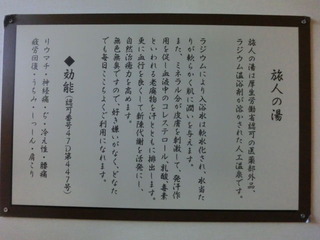 旅人の湯
旅人の湯は厚生労働省認可の医薬部外品、
ラジウム温浴剤が溶かされた人工温泉です。
ラジウムにより入浴水は軟水化され、水当た
りが軟らかく肌に潤いを与えます。
また、ミネラル分が皮膚を刺激して、発汗作
用を促し血液中のコレステロール、乳酸、毒素
といわれる老廃物を汗とともに排出します。
更に血行を良くして新陳代謝を活発にし、
自然治癒力を高めます。
無色無臭ですので、好き嫌いがなく、どなた
でも毎日ここちよくご利用になれます。
◆効能（認可番号47D第447号）
リウマチ・神経痛・ぢ・冷え性・腰痛
疲労回復・うちみ・しっしん・肩こり